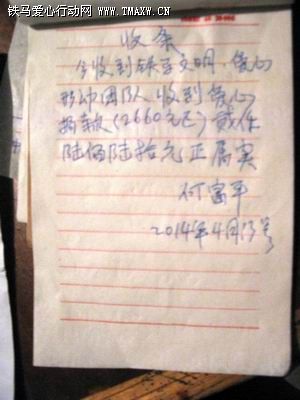 铁马爱心行动网 www.TMAXW.CN
收条
今收到铁马文明、爱心
行动团队收到爱心
捐款(2660元正)贰仟
陆佰陆拾元正属实
付富平
2014年4月13号